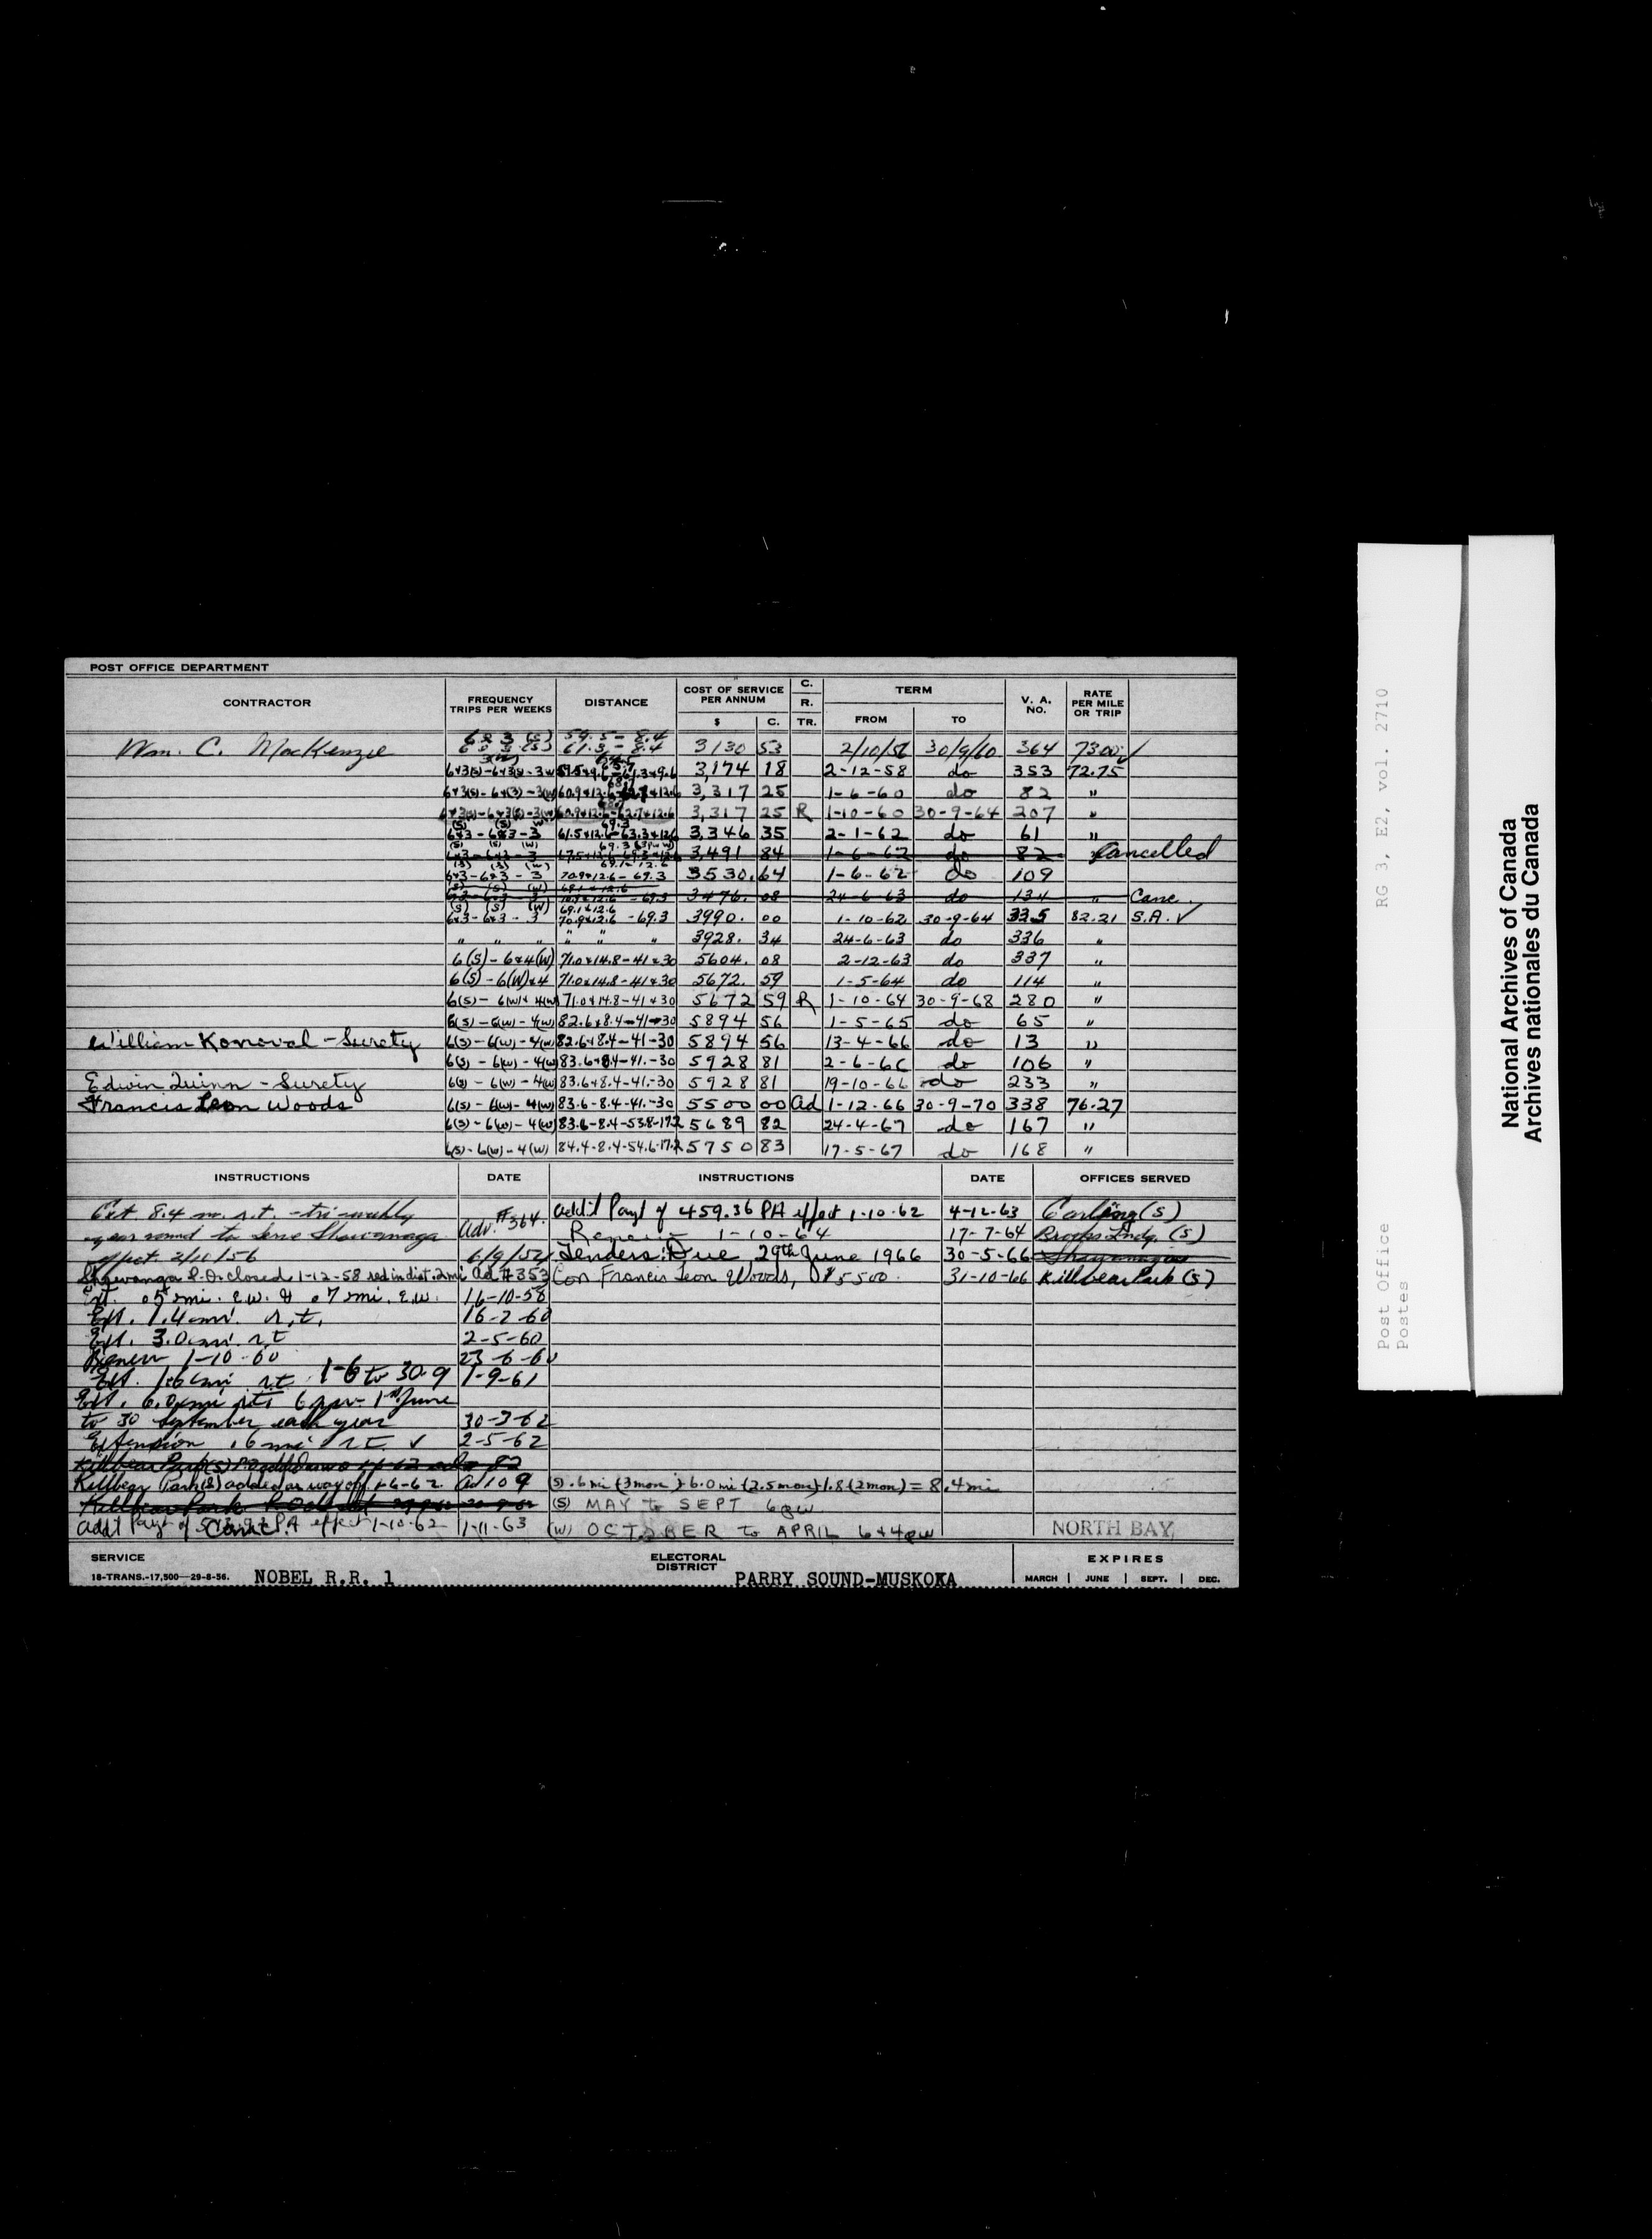 POST OFFICE DEPARTMENT
CONTRACTOR FREQUENCY TRIPS PER WEEKS DISTANCE COST OF SERVICE PER ANNUM $ C. C. R. TR. TERM FROM TO V. A. NO. RATE PER MILE OR TRIP
Wm. C. MacKenzie 6 & 3 (S) 59.5 - 8.4 61.3 - 8.4 3130 53 2/10/56 30/9/60 364 73.00 ✓
6+3(S)-6+3(S)-3W 59.5+9.6-61.3+9.6 3,174 18 2-12-58 do 353 72.75
6+3(S)-6+(3)-3(W) 60.9+12.6-62.7+12.6 3,317 25 1-6-60 do 82 "
6+3(S)-6+3(S)-3(W) 60.9+12.6-62.7+12.6 3,317 25 R 1-10-60 30-9-64 207 "
(S) (S) W 69.3
6&3-6&3-3 61.5+12.6-63.3+12.6 3,346 35 2-1-62 do 61 "
(S) (S) (W) 69.3
6+3-6+3-3 67.5+12.6-69.3+12.6 3,491 84 1-6-62 do 82 " Cancelled
(S) (S) (W) 69.1-12.6
6+3-6+3-3 70.9+12.6-69.3 3530.64 1-6-62 do 109
(S) (S) (W) 69.1+12.6
6+3-6+3-3 70.9+12.6-69.3 3476.08 24-6-63 do 134 " Canc.
(S) (S) (W) 69.1&12.6
6&3-6&3-3 70.9&12.6-69.3 3990.00 1-10-62 30-9-64 335 82.21 S.A. ✓
" " " " " " 3928.34 24-6-63 do 336 "
6(S)-6&4(W) 71.0&14.8-41&30 5604.08 2-12-63 do 337 "
6(S)-6(W)&4 71.0&14.8-41&30 5672.59 1-5-64 do 114 "
6(S)-6(W)+4(W) 71.0+14.8-41+30 5672 59 R 1-10-64 30-9-68 280 "
6(S)-6(W)-4(W) 82.6+8.4-41-30 5894 56 1-5-65 do 65 "
William Konoval - Surety 6(S)-6(W)-4(W) 82.6+8.4-41-30 5894 56 13-4-66 do 13 "
6(S)-6(W)-4(W) 83.6+8.4-41.-30 5928 81 2-6-66 do 106 "
Edwin Quinn - Surety 6(S)-6(W)-4(W) 83.6+8.4-41.-30 5928 81 19-10-66 do 233 "
Francis Leon Woods 6(S)-6(W)-4(W) 83.6-8.4-41.-30 5500 00 Ad 1-12-66 30-9-70 338 76.27
6(S)-6(W)-4(W) 83.6-8.4-53.8-17.2 5689 82 24-4-67 do 167 "
6(S)-6(W)-4(W) 84.4-8.4-54.6-17.2 5750 83 17-5-67 do 168 "
INSTRUCTIONS DATE INSTRUCTIONS DATE OFFICES SERVED
Ext. 8.4 m. r.t. - tri-weekly Adv. #364. Addit Payt of 459.36 PA effect 1-10-62 4-12-63 Carling (S)
year round to serve Shawanaga Renew 1-10-64 17-7-64 Brooks Lndg. (S)
effect. 2/10/56 Tenders Due 29th June 1966 30-5-66 Shawanaga
Shawanga P.O. closed 1-12-58 red in dist. 2mi Ad #353 Con Francis Leon Woods, $5500. 31-10-66 Killbear Park (S)
Ext. .05 mi. E.W. & .07 mi. E.W. 16-10-58
Ext. 1.4 mi. r.t. 16-2-60
Ext. 3.0 mi r.t 2-5-60
Renew 1-10-60 23-6-60
Ext. 1.6 mi r.t 1-6 to 30.9 1-9-61
Ext. 6.0 mi 6 1st June
to 30 September each year 30-3-62
Extension .6 mi r.t ✓ 2-5-62
Killbear Park (S) added as way off 1-6-62 Ad 109 (S) .6 mi (3 mon) + 6.0 mi (2.5 mon) + 1.8 (2 mon) = 8.4 mi
(S) MAY to SEPT 6pw
Addt Payt of PA effect 1-10-62 1-11-63 (W) OCTOBER to APRIL 6+4pw NORTH BAY,
Canc.
SERVICE 18-TRANS.-17,500—29-8-56. NOBEL R.R. 1 ELECTORAL DISTRICT PARRY SOUND-MUSKOKA EXPIRES MARCH | JUNE | SEPT. | DEC.
RG 3, E2, vol. 2710
Post Office
Postes
National Archives of Canada
Archives nationales du Canada